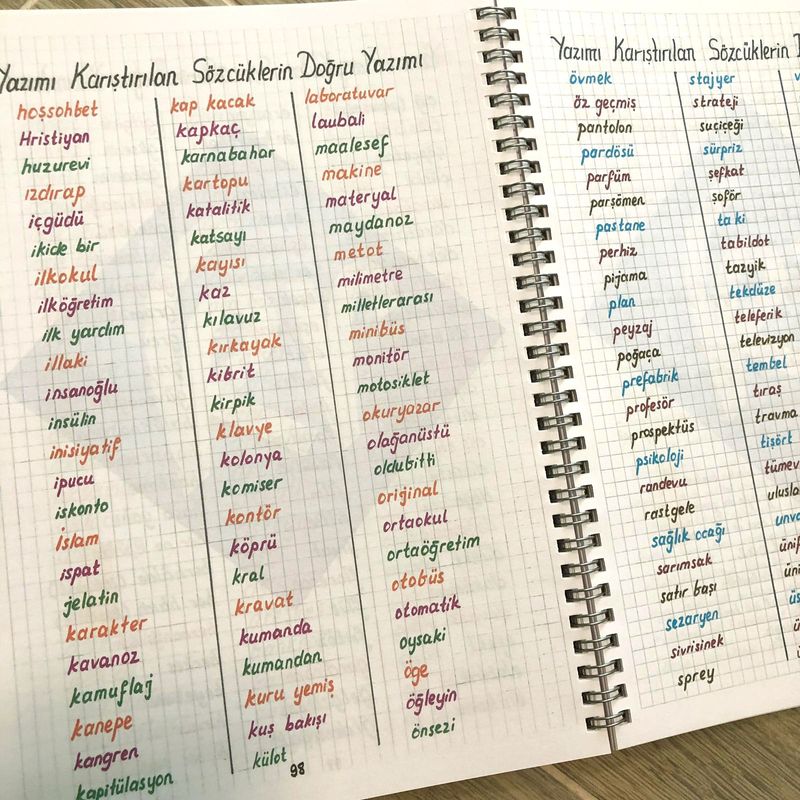 Yazımı Karıştırılan Sözcüklerin Doğru Yazımı
hoşsohbet
Hristiyan
huzurevi
ızdırap
içgüdü
ikide bir
ilkokul
ilköğretim
ilk yardım
illaki
insanoğlu
insülin
inisiyatif
ipucu
iskonto
İslam
ispat
jelatin
karakter
kavanoz
kamuflaj
kanepe
kangren
kapitülasyon
kap kacak
kapkaç
karnabahar
kartopu
katalitik
katsayı
kayısı
kaz
kılavuz
kırkayak
kibrit
kirpik
klavye
kolonya
komiser
kontör
köprü
kral
kravat
kumanda
kumandan
kuru yemiş
kuş bakışı
külot
laboratuvar
laubali
maalesef
makine
materyal
maydanoz
metot
milimetre
milletlerarası
minibüs
monitör
motosiklet
okuryazar
olağanüstü
oldubitti
orijinal
ortaokul
ortaöğretim
otobüs
otomatik
oysaki
öge
öğleyin
önsezi
98
Yazımı Karıştırılan Sözcüklerin
övmek
öz geçmiş
pantolon
pardösü
parfüm
parşömen
pastane
perhiz
pijama
plan
peyzaj
poğaça
prefabrik
profesör
prospektüs
psikoloji
randevu
rastgele
sağlık ocağı
sarımsak
satır başı
sezaryen
sivrisinek
sprey
stajyer
strateji
suçiçeği
sürpriz
şefkat
şoför
ta ki
tabildot
tazyik
tekdüze
teleferik
televizyon
tembel
tıraş
travma
tişört